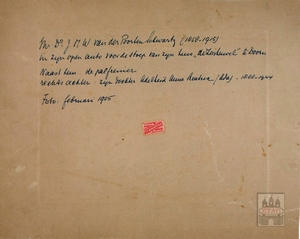 Mr. Dr. J. M. W. van der Poorten Schwartz (1858-1915)
in zijn open auto voor de stoep van zijn huis, te Doorn
Naast hem de palfrenier
rechts achter zijn dochter Adelheid Anna
Foto: februari 1905